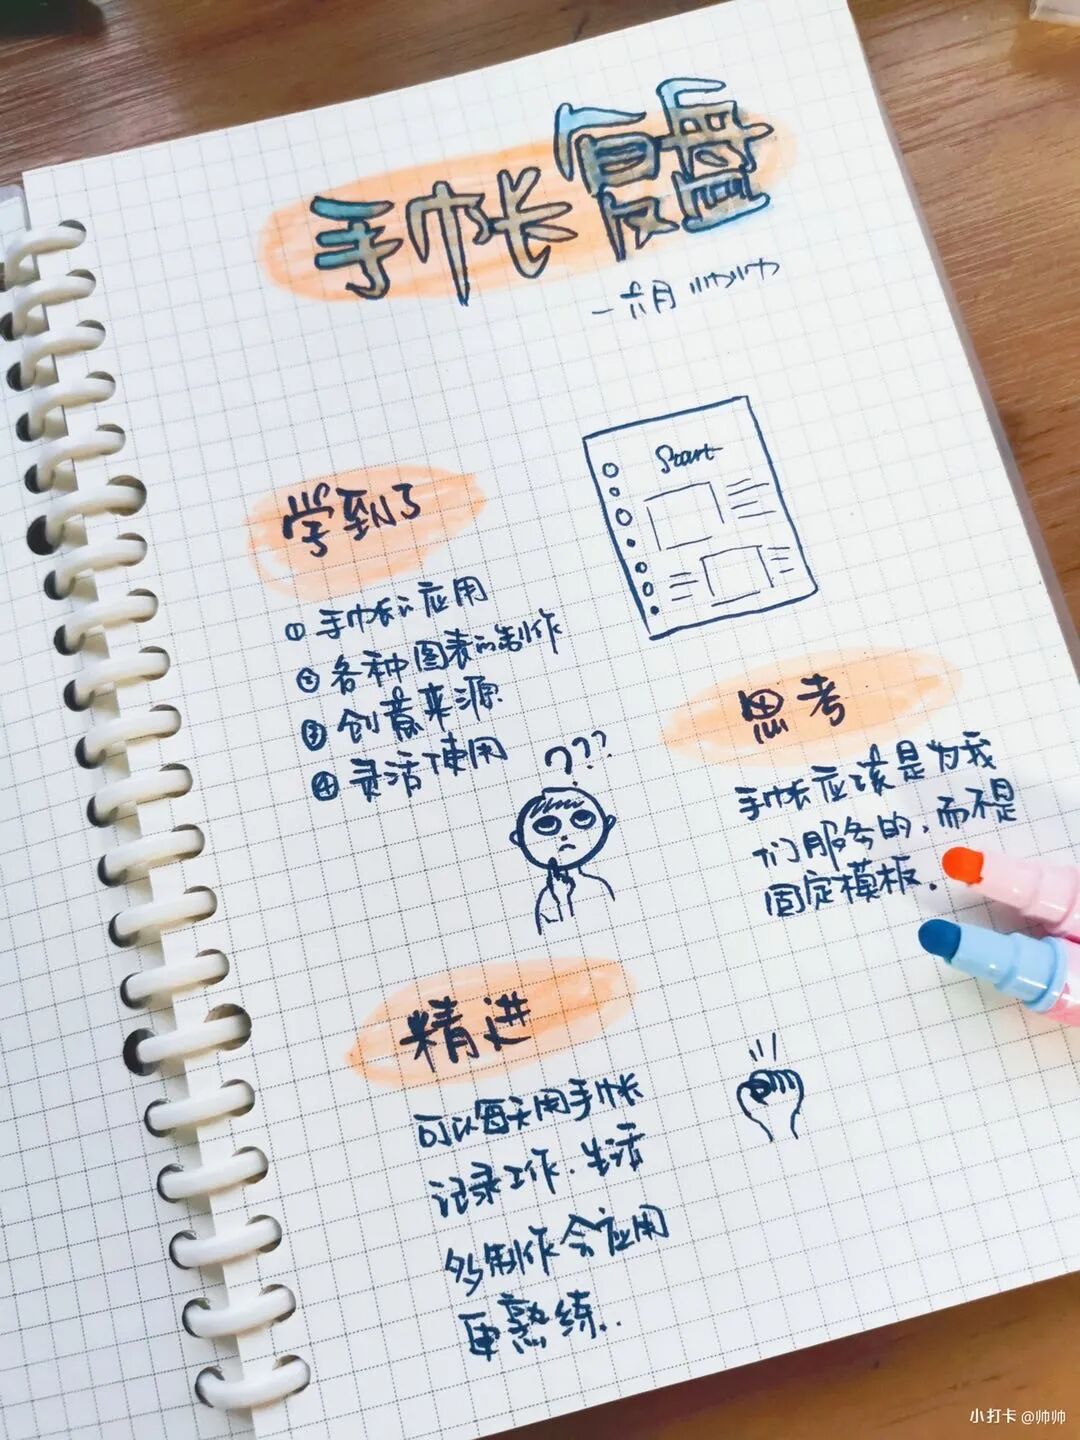 手帐复盘
一六月 帅帅
Start
学到了
① 手帐的应用
② 各种图表的制作
③ 创意来源
④ 灵活使用
???
思考
手帐应该是为我
们服务的，而不是
固定模板.
精进
可以每天用手帐
记录工作.生活
多制作会应用
更熟练..
小打卡 @帅帅